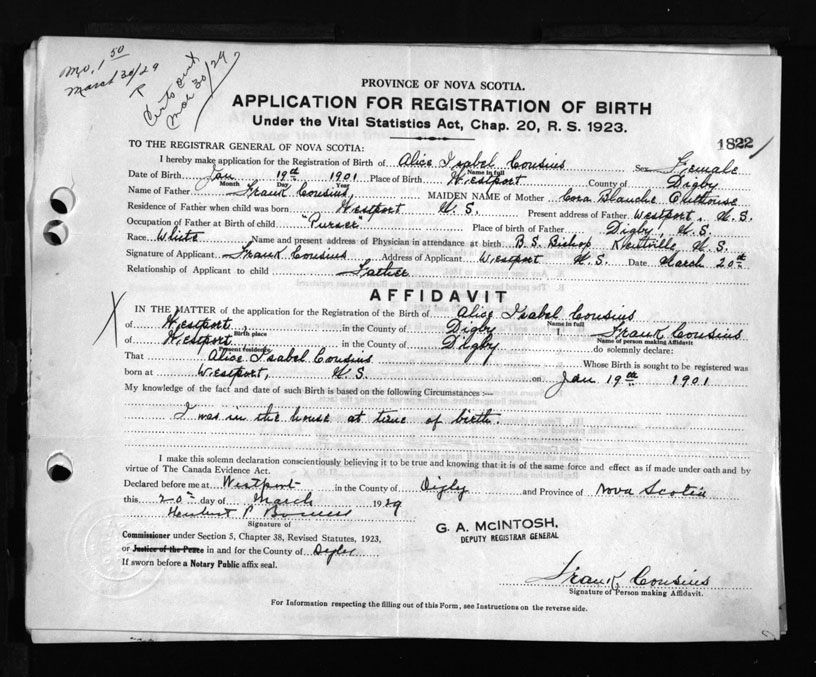 Mo. 1 50
March 30/29
Mar 30/29
PROVINCE OF NOVA SCOTIA.
APPLICATION FOR REGISTRATION OF BIRTH
Under the Vital Statistics Act, Chap. 20, R. S. 1923.
1822
TO THE REGISTRAR GENERAL OF NOVA SCOTIA:
I hereby make application for the Registration of Birth of Alice Isabel Cousins Sex Female
Name in full
Date of Birth Jan 19th 1901 Place of Birth Westport County of Digby
Month Day Year
Name of Father Frank Cousins, MAIDEN NAME of Mother Cora Blanche Outhouse
Residence of Father when child was born Westport N. S. Present address of Father Westport, N. S.
Occupation of Father at Birth of child "Purser" Place of birth of Father Digby, N. S.
Race White Name and present address of Physician in attendance at birth B. S. Bishop Kentville N. S.
Signature of Applicant Frank Cousins Address of Applicant Westport N. S. Date March 20th
Relationship of Applicant to child Father
AFFIDAVIT
IN THE MATTER of the application for the Registration of the Birth of Alice Isabel Cousins
Name in full
of Westport, in the County of Digby Frank Cousins
Birth place Name of person making Affidavit
of Westport, in the County of Digby do solemnly declare:
Present residence
That Alice Isabel Cousins Whose Birth is sought to be registered was
born at Westport, N. S. on Jan 19th 1901
My knowledge of the fact and date of such Birth is based on the following Circumstances :—
I was in the house at time of birth.
I make this solemn declaration conscientiously believing it to be true and knowing that it is of the same force and effect as if made under oath and by
virtue of The Canada Evidence Act.
Declared before me at Westport in the County of Digby and Province of Nova Scotia
this 20th day of March 1929
Herbert P
Signature of
G. A. McINTOSH,
DEPUTY REGISTRAR GENERAL
Commissioner under Section 5, Chapter 38, Revised Statutes, 1923,
or Justice of the Peace in and for the County of Digby
If sworn before a Notary Public affix seal.
Frank Cousins
Signature of Person making Affidavit.
For Information respecting the filling out of this Form, see Instructions on the reverse side.